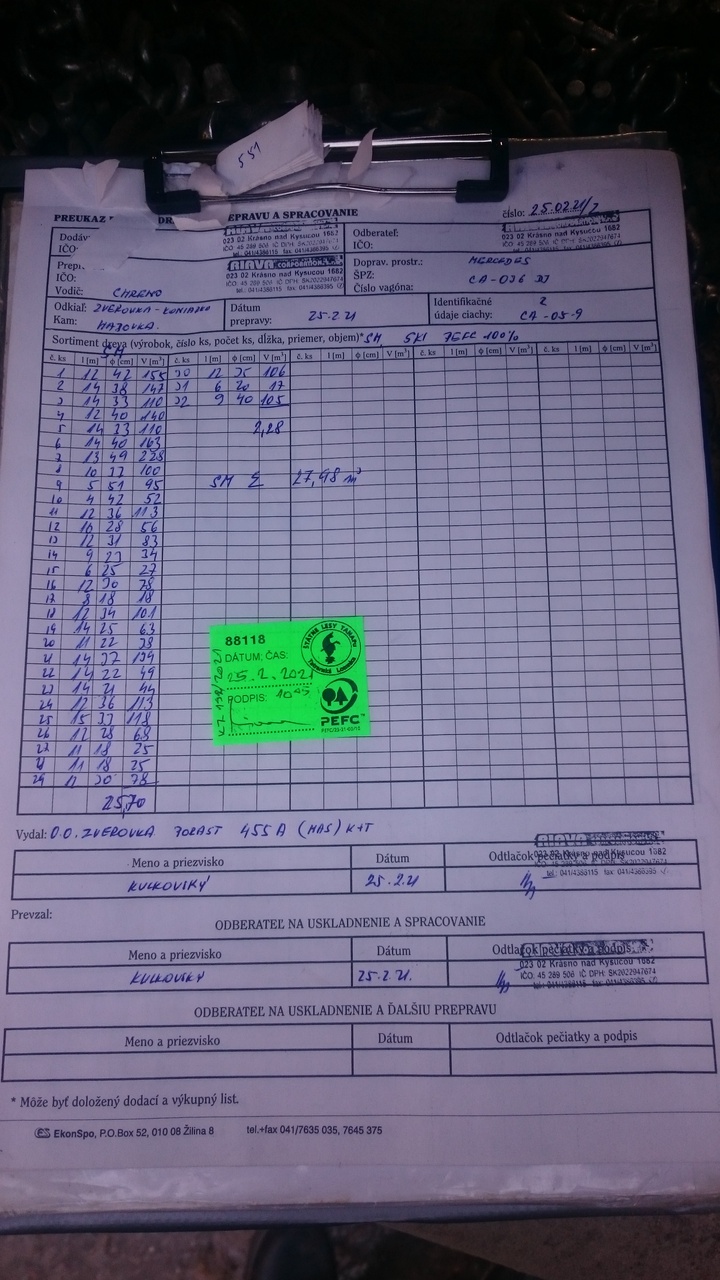 551
PREUKAZ
EPRAVU A SPRACOVANIE
číslo: 25.0221/7
Dodáv
023 02 Krásno nad Kysucou 1682
Odberateľ:
IČO:
IČO:
023 02 Krásno nad Kysucou 1682
IČO:
Vodič: CHRENO
ALAVA CORPORATION
023 02 Krásno nad Kysucou 1682
Doprav. prostr.: MERCEDES
ŠPZ: CA-036
Číslo vagóna:
Odkiaľ: ZVEROVKA-
Kam:
Dátum
prepravy: 25.2.21
Identifikačné 2
údaje ciachy: CA-05-9
Sortiment dreva (výrobok, číslo ks, počet ks, dĺžka, priemer, objem)* SM PEFC 100%
SM
č. ks l [m] φ [cm] V [m³] č. ks l [m] φ [cm] V [m³] č. ks l [m] φ [cm] V [m³] č. ks l [m] φ [cm] V [m³] č. ks l [m] φ [cm] V [m³]
1 12 42 155 30 12 35 106
2 14 38 147 31 6 20 17
3 14 33 110 32 9 40 105
4 12 40 140
5 14 33 110 2,28
6 14 40 163
7 13 49 228
8 10 37 100
9 5 51 95 SM Σ 27,98 m³
10 4 42 52
11 12 36 113
12 10 28 56
13 12 31 83
14 9 23 34
15 6 25 27
16 12 30 78
17 8 18 18
18 12 34 101
19 14 25 63
20 11 22 38
21 14 37 134
22 14 22 49
23 14 21 44
24 12 36 113
25 15 33 118
26 12 28 68
27 11 18 25
28 11 18 25
29 12 30 78
25,70
88118
DÁTUM, ČAS:
25.2.2021
PODPIS: 10 45
ŠTÁTNE LESY TANAPu
Tatranská Lomnica
PEFC
Vydal: O.O. ZVEROVKA PORAST 455A (MAS) K+T
Meno a priezvisko Dátum Odtlačok pečiatky a podpis
KULKOVSKÝ 25.2.21
023 02 Krásno nad Kysucou 1682
tel.: 041/4386115 fax: 041/4386395
Prevzal:
ODBERATEĽ NA USKLADNENIE A SPRACOVANIE
Meno a priezvisko Dátum Odtlačok pečiatky a podpis
KULKOVSKÝ 25.2.21.
023 02 Krásno nad Kysucou 1682
IČO: 45 289 506 IČ DPH: SK2022947674
tel.: 041/4386115 fax: 041/4386395
ODBERATEĽ NA USKLADNENIE A ĎALŠIU PREPRAVU
Meno a priezvisko Dátum Odtlačok pečiatky a podpis
* Môže byť doložený dodací a výkupný list.
EkonSpo, P.O.Box 52, 010 08 Žilina 8 tel.+fax 041/7635 035, 7645 375